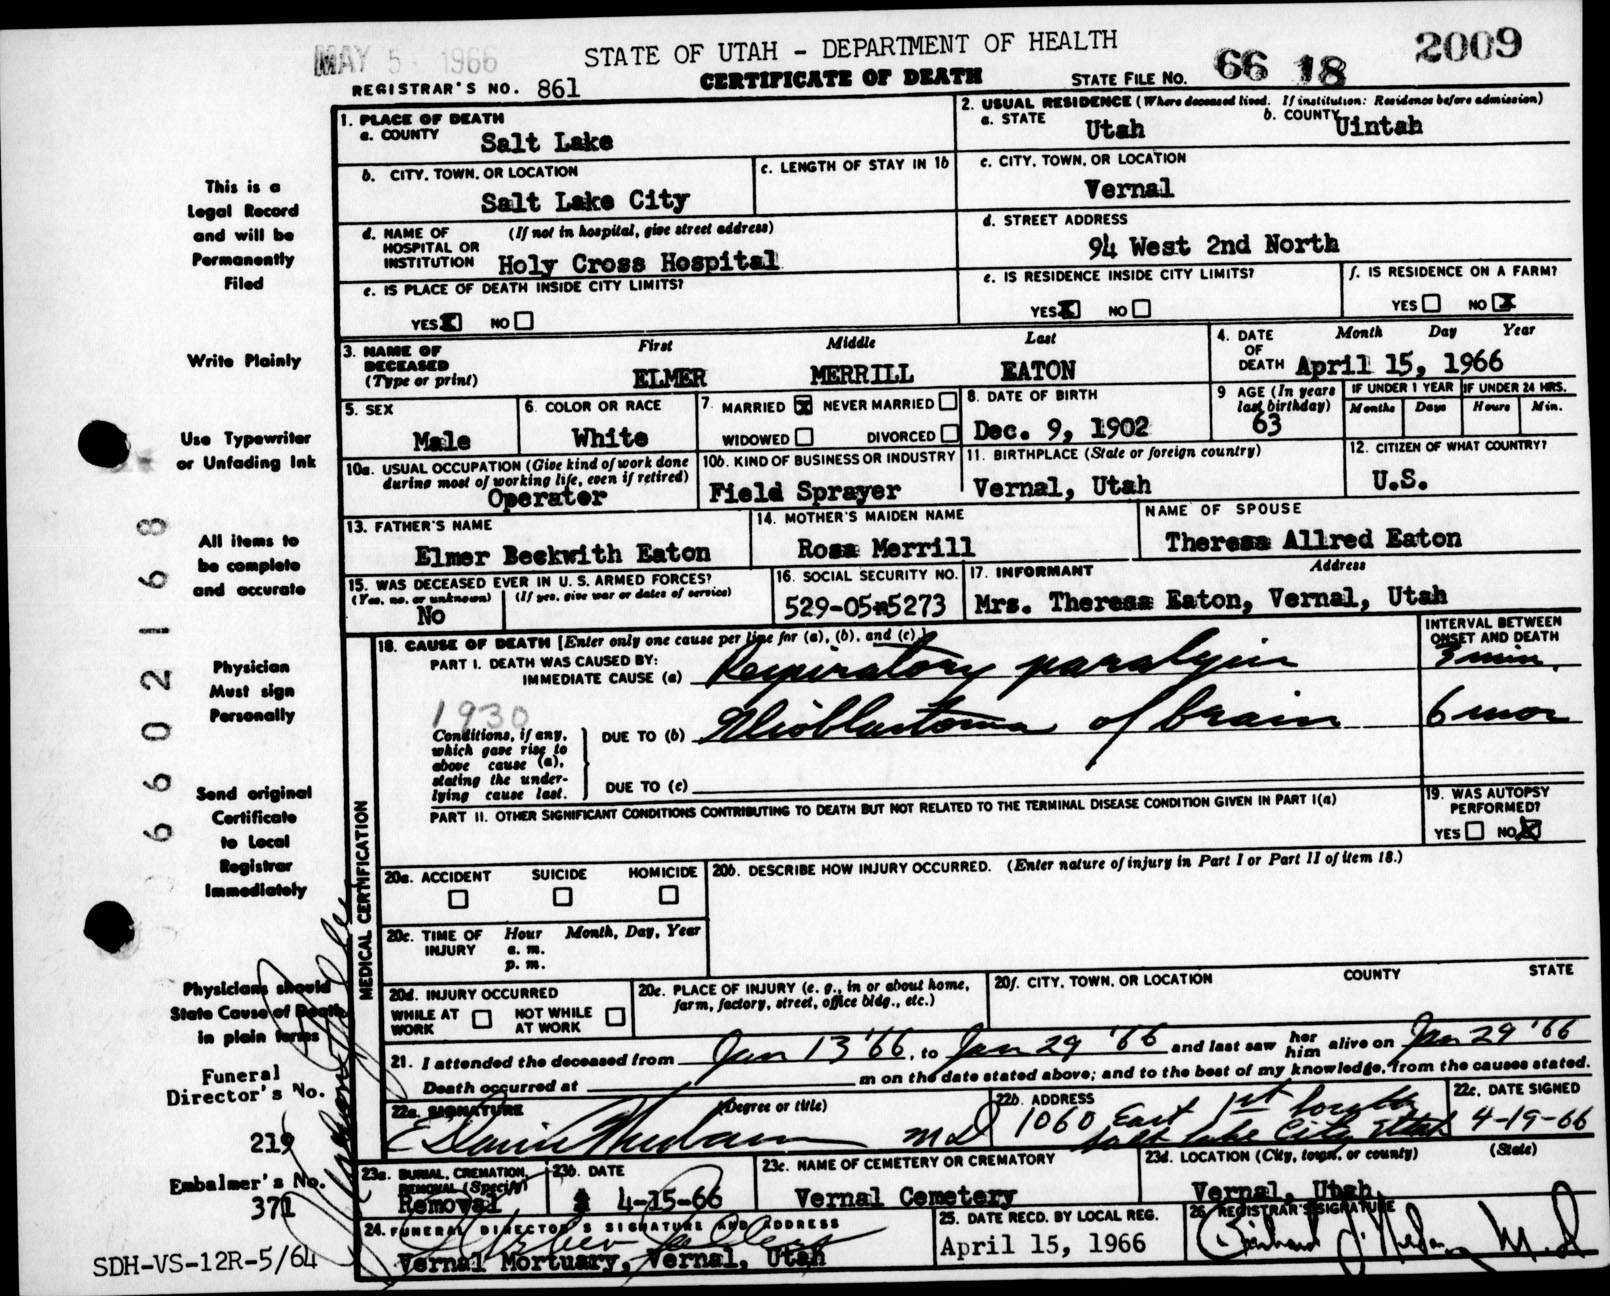 MAY 5 1966
STATE OF UTAH - DEPARTMENT OF HEALTH
2009
REGISTRAR'S NO. 861
CERTIFICATE OF DEATH
STATE FILE NO. 66 18
1. PLACE OF DEATH
a. COUNTY Salt Lake
2. USUAL RESIDENCE (Where deceased lived. If institution: Residence before admission)
a. STATE Utah
b. COUNTY Uintah
b. CITY, TOWN, OR LOCATION
Salt Lake City
c. LENGTH OF STAY IN 1b
c. CITY, TOWN, OR LOCATION
Vernal
d. NAME OF (If not in hospital, give street address)
HOSPITAL OR
INSTITUTION Holy Cross Hospital
d. STREET ADDRESS
94 West 2nd North
e. IS PLACE OF DEATH INSIDE CITY LIMITS?
YES NO
e. IS RESIDENCE INSIDE CITY LIMITS?
YES NO
f. IS RESIDENCE ON A FARM?
YES NO
3. NAME OF DECEASED (Type or print)
First Middle Last
ELMER MERRILL EATON
4. DATE OF DEATH
Month Day Year
April 15, 1966
5. SEX
Male
6. COLOR OR RACE
White
7. MARRIED NEVER MARRIED
WIDOWED DIVORCED
8. DATE OF BIRTH
Dec. 9, 1902
9 AGE (In years last birthday)
63
IF UNDER 1 YEAR
Months Days
IF UNDER 24 HRS.
Hours Min.
10a. USUAL OCCUPATION (Give kind of work done
during most of working life, even if retired)
Operator
10b. KIND OF BUSINESS OR INDUSTRY
Field Sprayer
11. BIRTHPLACE (State or foreign country)
Vernal, Utah
12. CITIZEN OF WHAT COUNTRY?
U.S.
13. FATHER'S NAME
Elmer Beckwith Eaton
14. MOTHER'S MAIDEN NAME
Rosa Merrill
NAME OF SPOUSE
Theresa Allred Eaton
15. WAS DECEASED EVER IN U. S. ARMED FORCES?
(Yes, no, or unknown) (If yes, give war or dates of service)
No
16. SOCIAL SECURITY NO.
529-05-5273
17. INFORMANT Address
Mrs. Theresa Eaton, Vernal, Utah
MEDICAL CERTIFICATION
18. CAUSE OF DEATH [Enter only one cause per line for (a), (b), and (c).]
INTERVAL BETWEEN
ONSET AND DEATH
PART I. DEATH WAS CAUSED BY:
IMMEDIATE CAUSE (a) Respiratory paralysis 3 min.
1930
Conditions, if any,
which gave rise to
above cause (a),
stating the under-
lying cause last.
DUE TO (b) Glioblastoma of brain 6 mos
DUE TO (c)
PART II. OTHER SIGNIFICANT CONDITIONS CONTRIBUTING TO DEATH BUT NOT RELATED TO THE TERMINAL DISEASE CONDITION GIVEN IN PART I(a)
19. WAS AUTOPSY
PERFORMED?
YES NO
20a. ACCIDENT SUICIDE HOMICIDE
20b. DESCRIBE HOW INJURY OCCURRED. (Enter nature of injury in Part I or Part II of item 18.)
20c. TIME OF INJURY
Hour Month, Day, Year
a. m.
p. m.
20d. INJURY OCCURRED
WHILE AT WORK
NOT WHILE AT WORK
20e. PLACE OF INJURY (e. g., in or about home,
farm, factory, street, office bldg., etc.)
20f. CITY, TOWN, OR LOCATION COUNTY STATE
21. I attended the deceased from Jan 13 '66, to Jan 29 '66 and last saw her him alive on Jan 29 '66
Death occurred at m on the date stated above; and to the best of my knowledge, from the causes stated.
22a. SIGNATURE (Degree or title)
MD
22b. ADDRESS
1060 East 1st South
Salt Lake City, Utah
22c. DATE SIGNED
4-19-66
23a. BURIAL, CREMATION,
REMOVAL (Specify)
Removal
23b. DATE
4-15-66
23c. NAME OF CEMETERY OR CREMATORY
Vernal Cemetery
23d. LOCATION (City, town, or county) (State)
Vernal, Utah
24. FUNERAL DIRECTOR'S SIGNATURE AND ADDRESS
Vernal Mortuary, Vernal, Utah
25. DATE RECD. BY LOCAL REG.
April 15, 1966
26. REGISTRAR'S SIGNATURE
M.D.
This is a
Legal Record
and will be
Permanently
Filed
Write Plainly
Use Typewriter
or Unfading Ink
All items to
be complete
and accurate
Physician
Must sign
Personally
Send original
Certificate
to Local
Registrar
Immediately
Physicians should
State Cause of Death
in plain terms
Funeral
Director's No.
219
Embalmer's No.
371
SDH-VS-12R-5/64
6602168